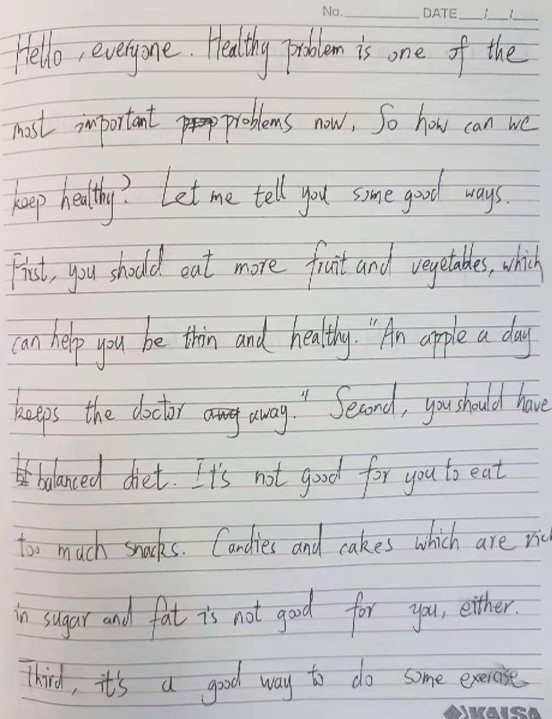 No. DATE / /
Hello, everyone. Healthy problem is one of the
most important problems now. So how can we
keep healthy? Let me tell you some good ways.
First, you should eat more fruit and vegetables, which
can help you be thin and healthy. "An apple a day
keeps the doctor away." Second, you should have
balanced diet. It's not good for you to eat
too much snacks. Candies and cakes which are rich
in sugar and fat is not good for you, either.
Third, it's a good way to do some exercise
KAISA